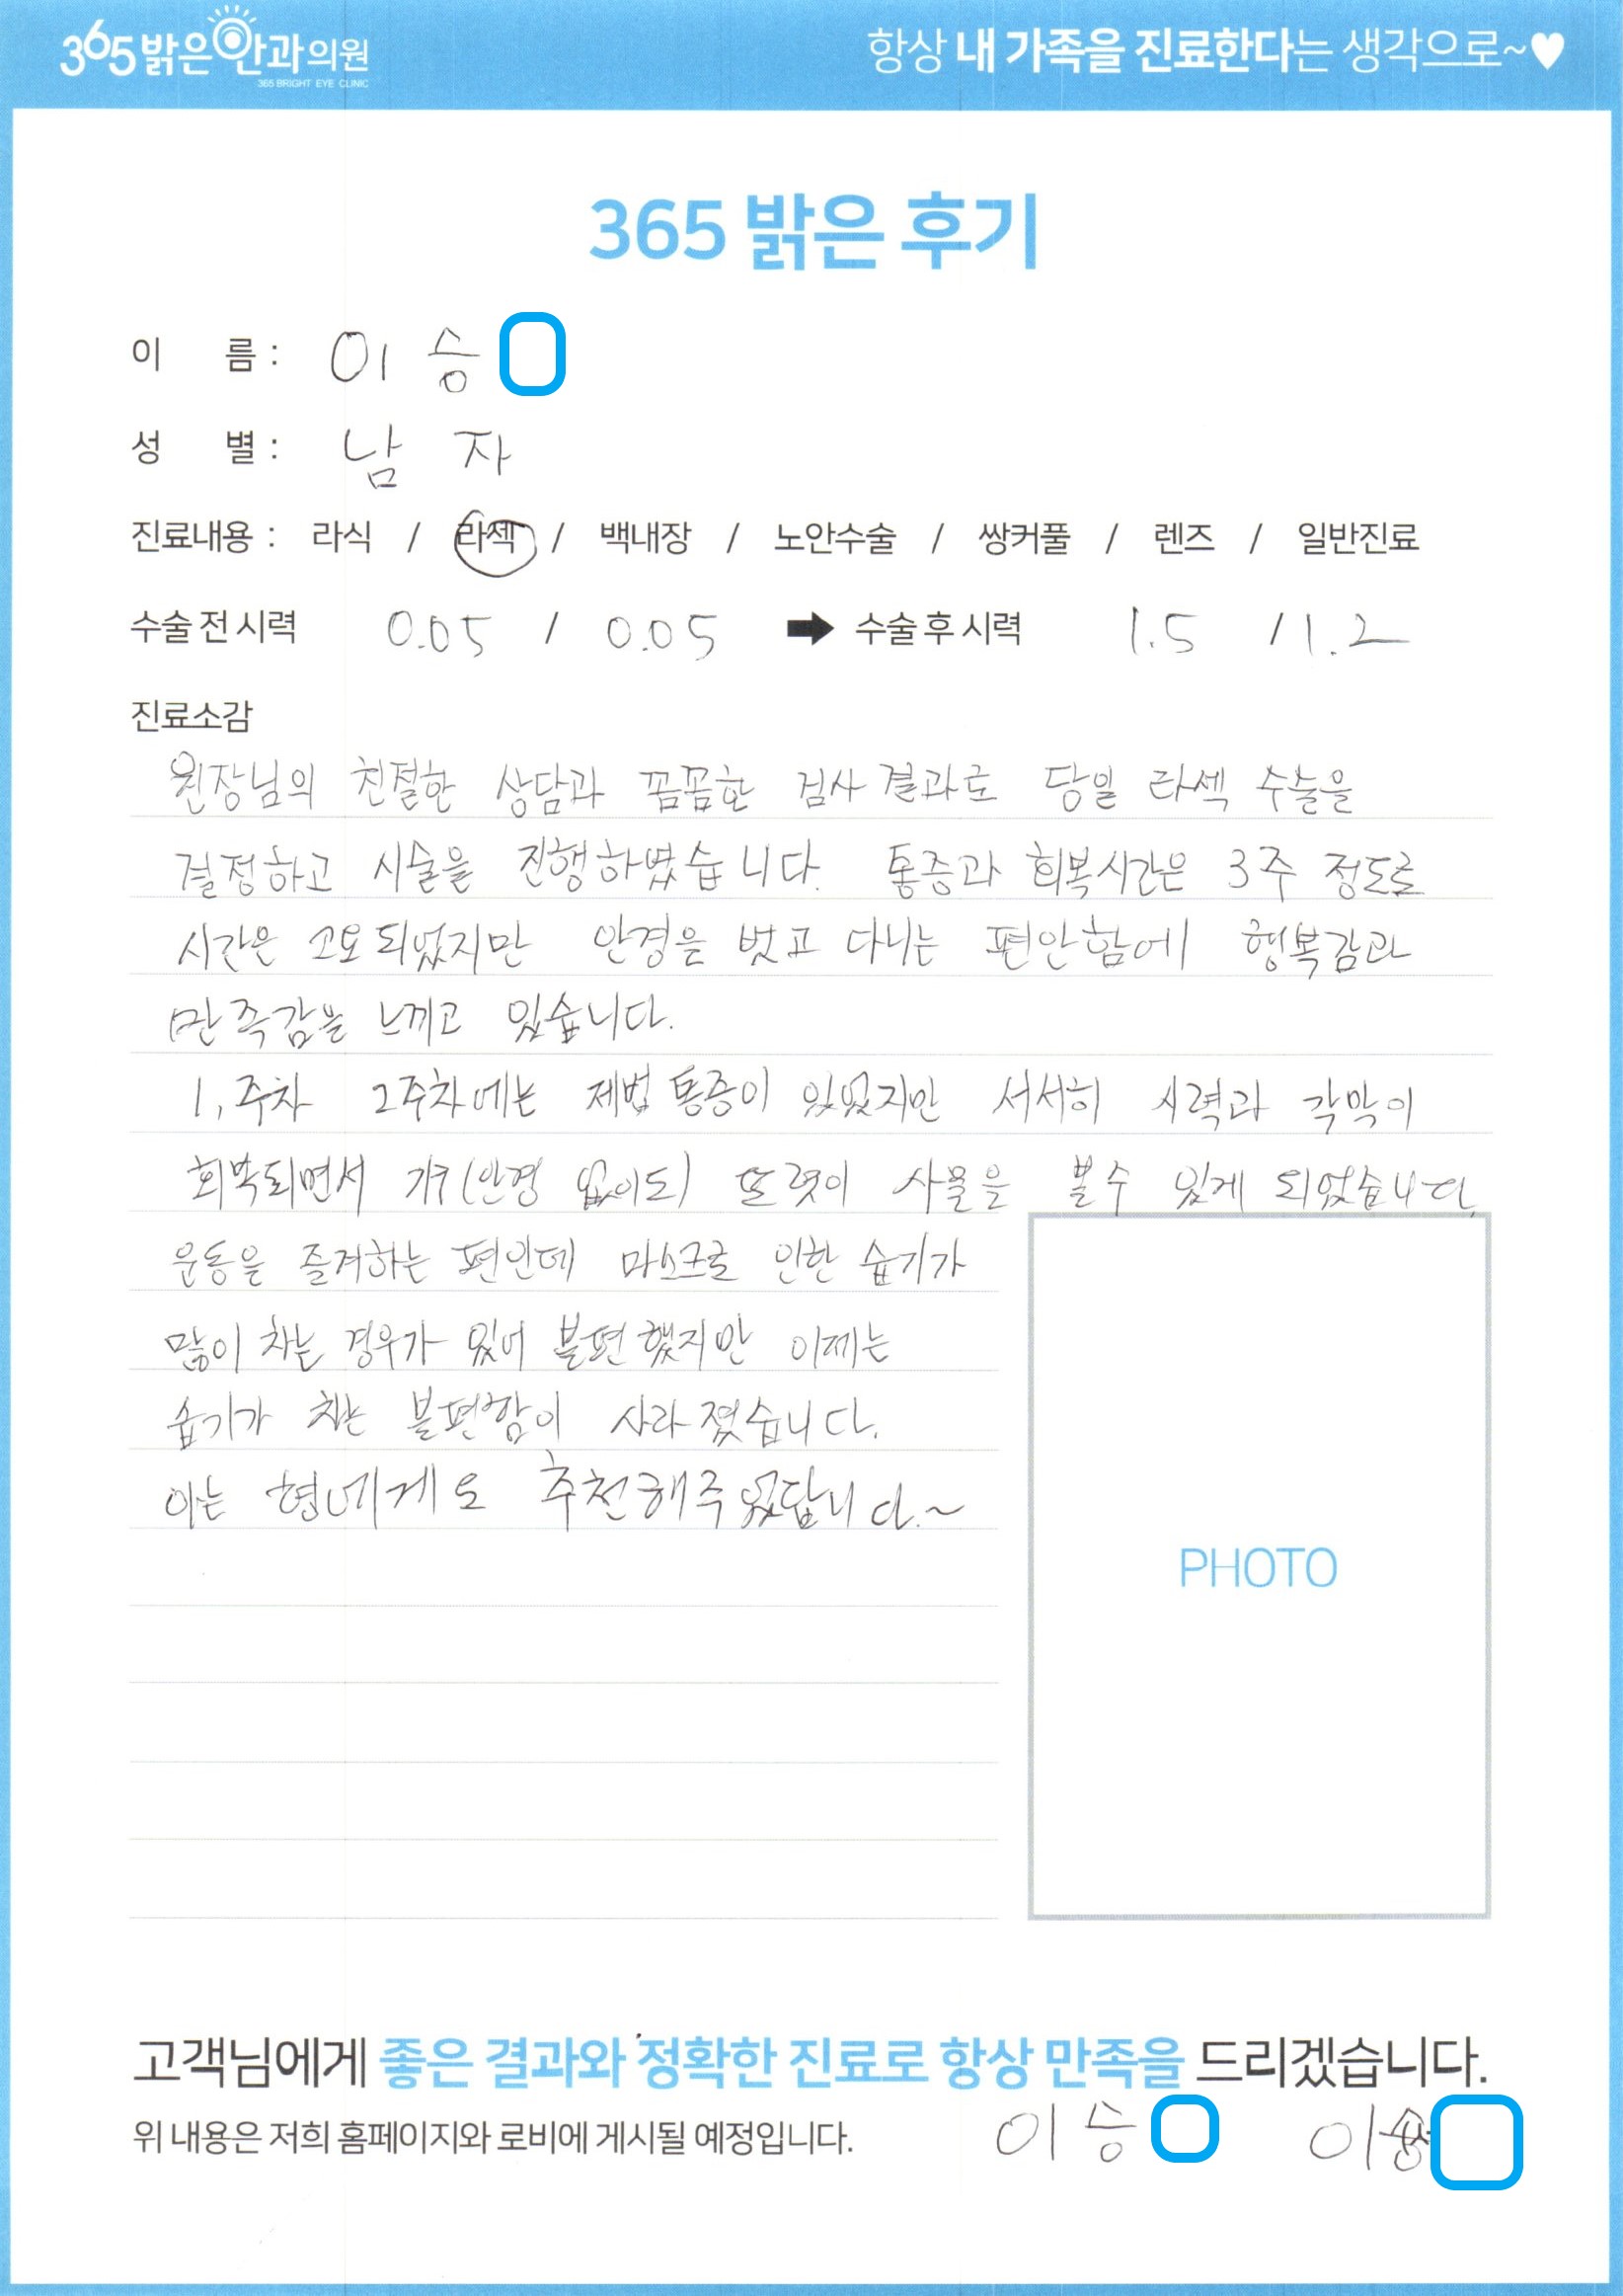 365 밝은안과의원
365 BRIGHT EYE CLINIC
항상 내 가족을 진료한다는 생각으로~♥
365 밝은 후기
이 름 : 이 승
성 별 : 남 자
진료내용 : 라식 / 라섹 / 백내장 / 노안수술 / 쌍커풀 / 렌즈 / 일반진료
수술 전 시력 0.05 / 0.05 ➡ 수술 후 시력 1.5 / 1.2
진료소감
원장님의 친절한 상담과 꼼꼼한 검사 결과로 당일 라섹 수술을
결정하고 시술을 진행하였습니다. 통증과 회복시간은 3주 정도로
시간은 소요되었지만 안경을 벗고 다니는 편안함에 행복감과
만족감을 느끼고 있습니다.
1,주차 2주차에는 제법 통증이 있었지만 서서히 시력과 각막이
회복되면서 (안경 없이도) 또렷이 사물을 볼수 있게 되었습니다.
운동을 즐겨하는 편인데 마스크로 인한 습기가
많이 차는 경우가 있어 불편했지만 이제는
습기가 차는 불편함이 사라졌습니다.
아는 형네게도 추천해주었답니다.~
PHOTO
고객님에게 좋은 결과와 정확한 진료로 항상 만족을 드리겠습니다.
위 내용은 저희 홈페이지와 로비에 게시될 예정입니다. 이 승 이승